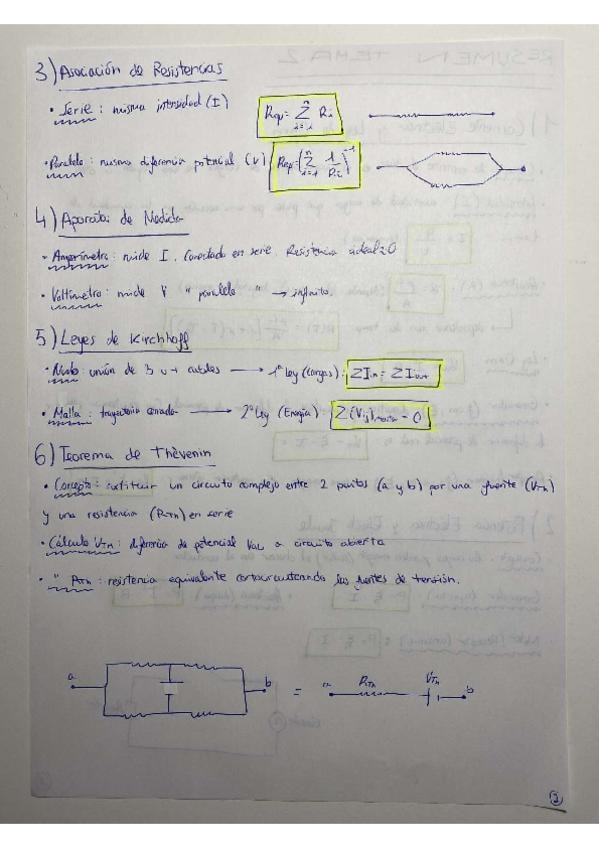 3) Asociación de Resistencias
• Serie: misma intensidad (I) Req = Σ i=1 n Ri
• Paralelo: misma diferencia potencial (V) Req = (Σ i=1 n 1/Ri)⁻¹
4) Aparatos de Medida
• Amperímetro: mide I. Conectado en serie. Resistencia ideal ≈ 0
• Voltímetro: mide V " paralelo " → infinito.
5) Leyes de Kirchhoff
• Nudo: unión de 3 u + cables → 1ª Ley (cargas): ΣIin = ΣIout
• Malla: trayectoria cerrada → 2ª Ley (Energía): Σ(Vij)malla = 0
6) Teorema de Thèvenin
• Concepto: sustituir un circuito complejo entre 2 puntos (a y b) por una fuente (VTh)
y una resistencia (RTh) en serie
• Cálculo VTh: diferencia de potencial Vab a circuito abierta
• " RTh: resistencia equivalente cortocircuitando las fuentes de tensión.
a b = a RTh VTh b
2